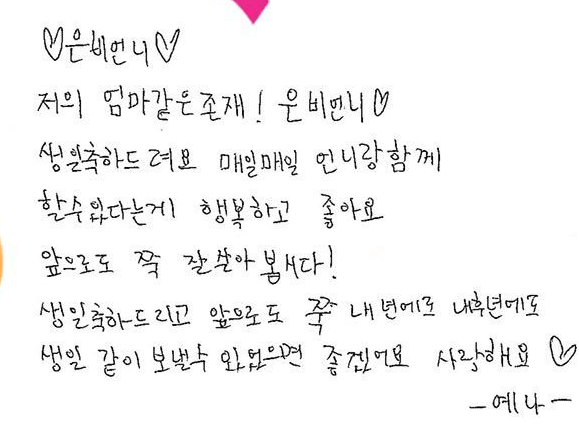 ♡은비언니♡
저의 엄마같은존재! 은비언니♡
생일축하드려요 매일매일 언니랑함께
할수있다는게 행복하고 좋아요
앞으로도 쭉 잘살아봅시다!
생일축하드리고 앞으로도 쭉 내년에도 내후년에도
생일 같이 보낼수 있었으면 좋겠어요 사랑해요 ♡
-예나-